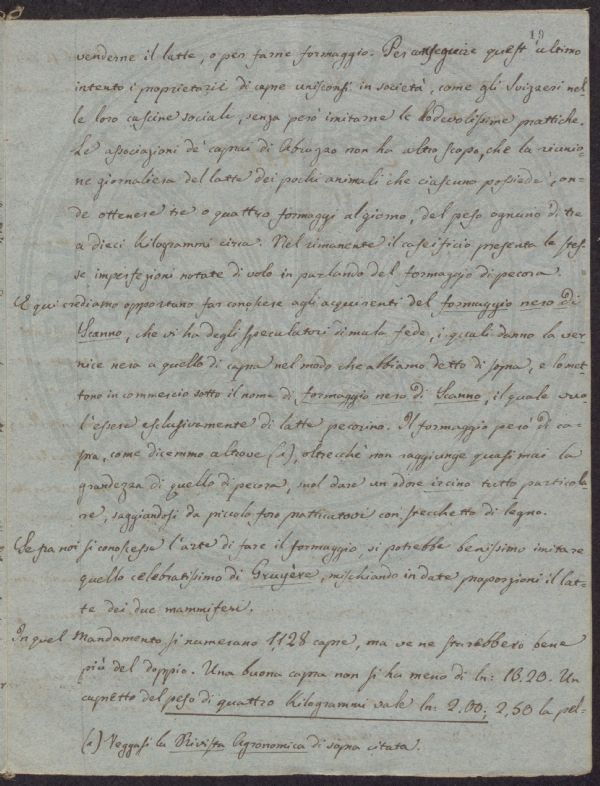 19
venderne il latte, o per farne formaggio. Per conseguire quest'ultimo
intento i proprietarii di capre unisconsi in società, come gli Svizzeri nel-
le loro cascine sociali, senza però imitarne le lodevolissime prattiche.
Le associazioni de' caprai di Abruzzo non ha altro scopo, che la riunio-
ne giornaliera del latte dei pochi animali che ciascuno possiede, on-
de ottenere tre o quattro formaggi al giorno, del peso ognuno di tre
a dieci Kilogrammi circa. Nel rimanente il caseificio presenta le stes-
se imperfezioni notate di volo in parlando del formaggio di pecora.
E qui crediamo opportuno far conoscere agli acquirenti del formaggio nero di
Scanno, che vi ha degli speculatori di mala fede, i quali danno la ver-
nice nera a quello di capra nel modo che abbiamo detto di sopra, e lo met-
tono in commercio sotto il nome di formaggio nero di Scanno, il quale vuo-
l'essere esclusivamente di latte pecorino. Il formaggio però di ca-
pra, come dicemmo altrove (a), oltrecchè non raggiunge quasi mai la
grandezza di quello di pecora, suol dare un odore ircino tutto particola-
re, saggiandosi da piccolo foro pratticatovi con stecchetto di legno.
Se fra noi si conoscesse l'arte di fare il formaggio, si potrebbe benissimo imitare
quello celebratissimo di Gruyère, mischiando in date proporzioni il lat-
te dei due mammiferi.
In quel Mandamento si numerano 1,128 capre, ma ve ne starebbero bene
più del doppio. Una buona capra non si ha meno di ln: 16.20. Un
capretto del peso di quattro Kilogrammi vale ln: 2.00; 2,50 la pel-
(a) Veggasi la Rivista Agronomica di sopra citata.